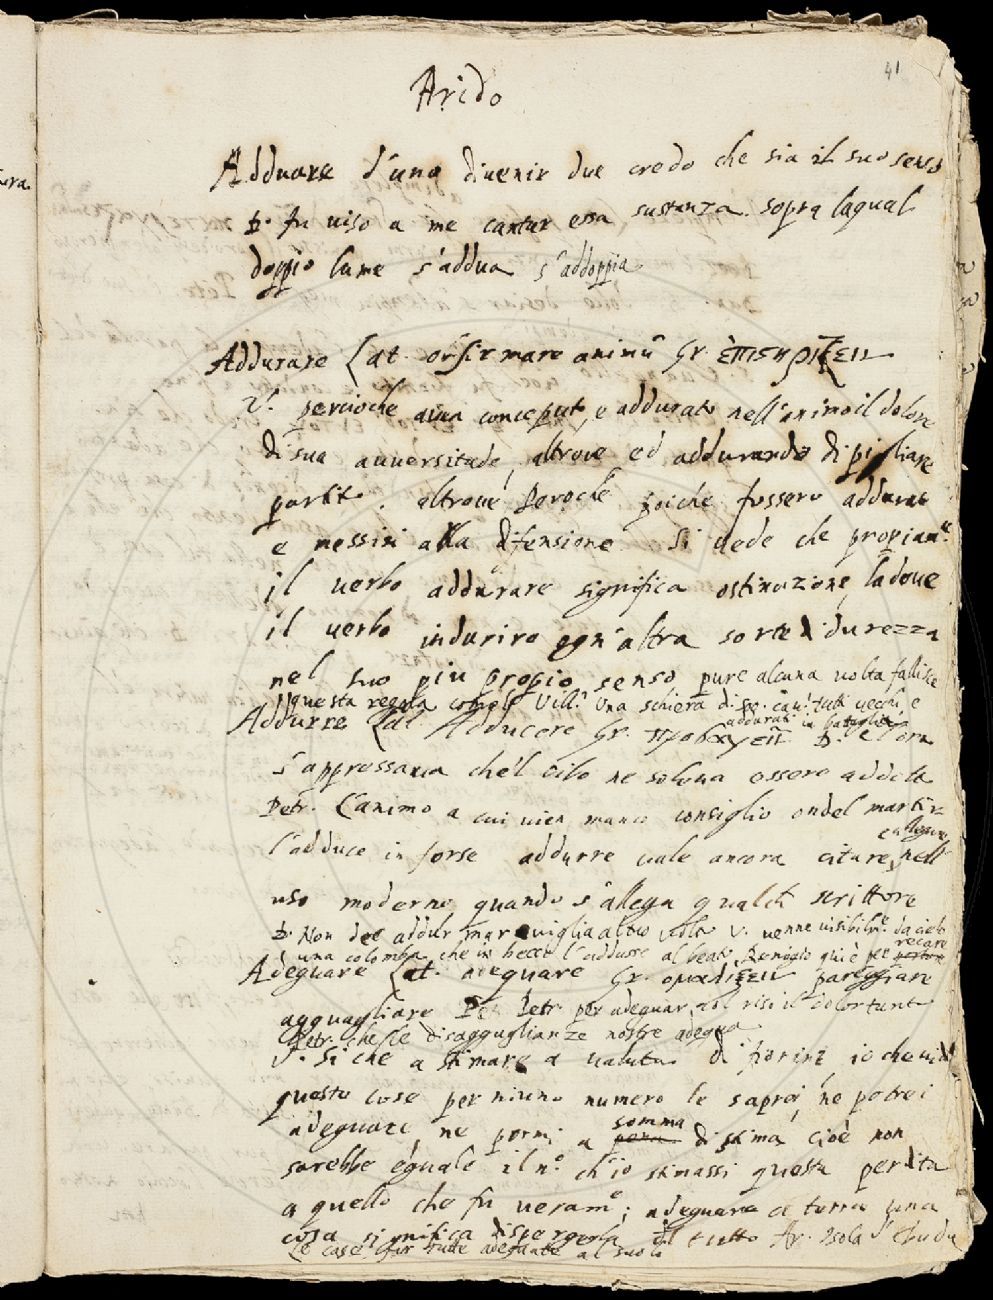 41
Arido
Adduare d'uno divenir due credo che sia il suo senso
D. fu viso a me cantar essa sustanza. sopra laqual
doppio lume s'addua s'addoppia
Addurare Lat. animū Gr.
V. percioche avea conceputo, e addurato nell'animo il dolore
di sua avversitade, altrove ed addurando di pigliare
partito. altrove Peroche poiche fussero addurati
e messisi alla difensione. Si vede che propiam.te
il verbo addurare significa ostinazione, ladove
il verbo indurire ogn'altra sorte di durezza
nel suo piu propio senso pure alcuna volta fallisce
questa regola Vill. Una schiera di tutti vecchi, e
addurati in battaglia
Addurre Lat Adducere Gr. D. e l'ora
s'appressava che'l cibo ne soleva essere addotto
Petr. L'animo a cui vien manco consiglio ondel martir
l'adduce in forse addurre vale ancora citare, nell'
e allegare
uso moderno quando s'allega qualch scrittore
D. Non dee addur maraviglia al tuo volto V. venne visibilm.e da cielo
una colomba, che in becco l'addusse al beato Remigio qui è per
recare
Adeguare Lat. adequare Gr. pareggiare
agguagliare Petr. per adeguar col riso il dolor tant
Petr. che le disagguaglianze nostre adegua
V. Si che a stimare a valuta di fiorini, io che vidi
queste cose per niuno numero le saprei, ne potrei
adeguare, ne pormi a somma di stima, cioè non
sarebbe eguale il n.o ch'io stimassi questa perdita
a quello che fu veram.e; adeguare a terra una
cosa significa dispergerla il tutto Ar.
Le case fur tutte adeguate al suolo